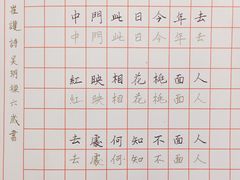 去年今日此門中
去年今日此門中
人面桃花相映紅
人面桃花相映紅
人面不知何處去
人面不知何處去
崔護詩吴玥六歲書